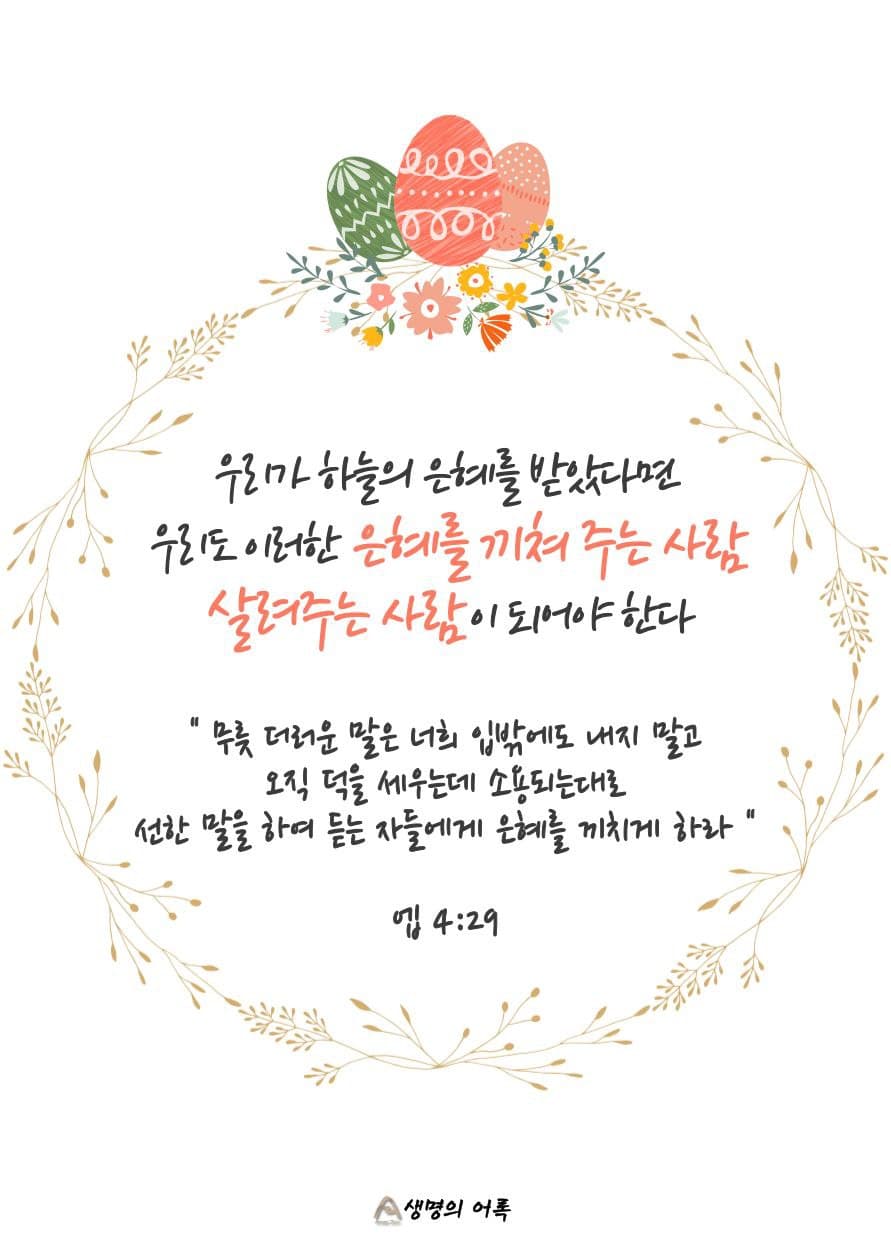 우리가 하늘의 은혜를 받았다면
우리도 이러한 은혜를 끼쳐 주는 사람
살려주는 사람이 되어야 한다
" 무릇 더러운 말은 너희 입밖에도 내지 말고
오직 덕을 세우는데 소용되는대로
선한 말을 하여 듣는 자들에게 은혜를 끼치게 하라 "
엡 4:29
생명의 어록